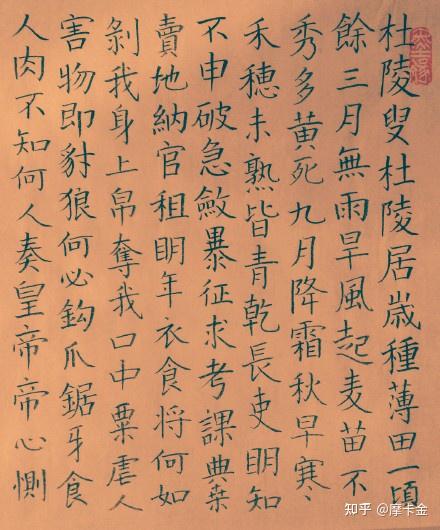 杜陵叟杜陵居歲種薄田一頃
餘三月無雨旱風起麦苗不
秀多黃死九月降霜秋早寒〻
禾穗未熟皆青乾長吏明知
不申破急斂暴征求考課典桒
賣地納官租明年衣食将何如
剝我身上帛奪我口中粟虐人
害物即豺狼何必鈎爪鋸牙食
人肉不知何人奏皇帝帝心惻
知乎 @摩卡金